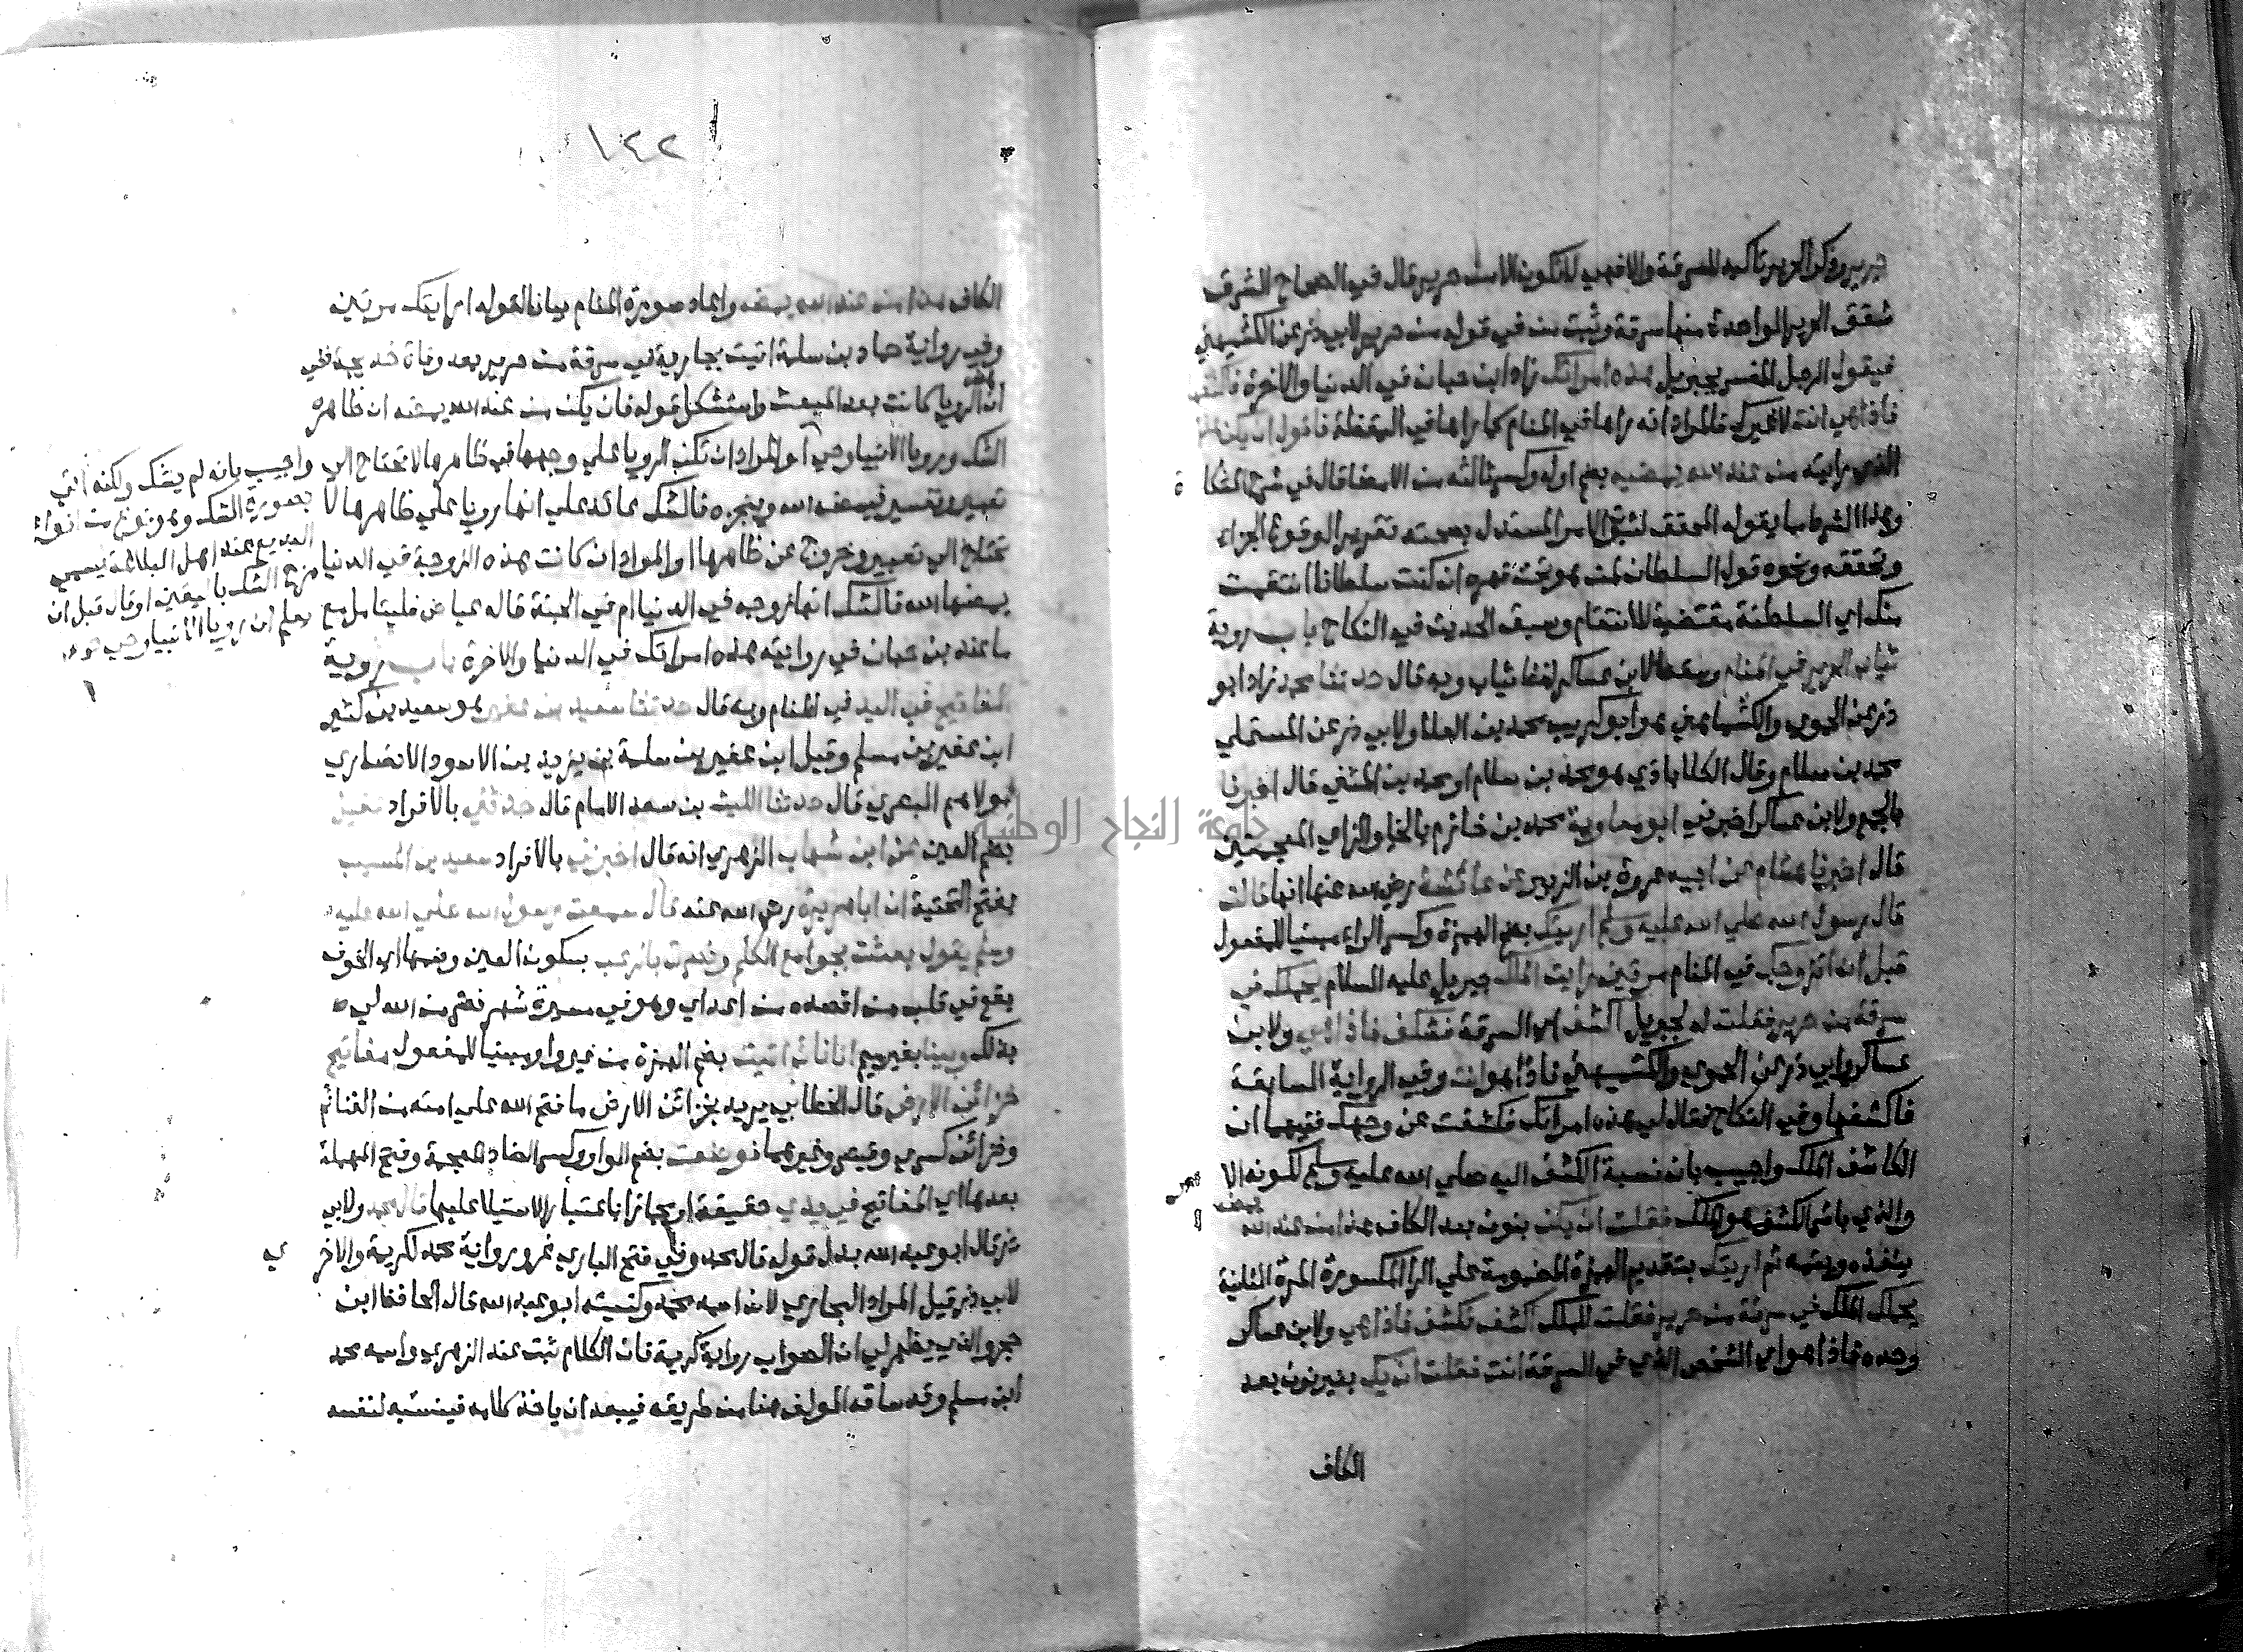 حرير وذكر الحرير تأكيد للسرقة والا فهي لا تكون الا من حرير قال في الصحاح السرق
شقق الحرير الواحدة منها سرقة وثبت من في قوله من حرير لابي ذر عن الكشميهني
فيقول الرجل المفسر بجبريل هذه امراتك زاد ابن حبان في الدنيا والاخرة فاكشفها
فاذا هي انت لا غيرك فالمراد انه راها في المنام كما راها في اليقظة فاقول ان يكن هذا
الذي رايته من عند الله يمضيه بضم اوله وكسر ثالثه من الامضا قال في شرح المشكاة
وهذا الشرط مما يقوله المحقق لثبوت الامر المستدل بصحته تقرير الوقوع الجزاء
وتحققه ونحوه قول السلطان لمن هو تحت قهره ان كنت سلطانا انتقمت
منك اي السلطنة مقتضية للانتقام وسبق الحديث في النكاح باب روية
ثياب الحرير في المنام وسقط لابن عساكر لفظ ثياب وبه قال حدثنا محمد زاد ابو
ذر عن الحموي والكشميهني هو ابو كريب محمد بن العلا ولابي ذر عن المستملي
محمد بن سلام وقال الكلاباذي هو محمد بن سلام او محمد بن المثنى قال اخبرنا
بالجمع ولابن عساكر اخبرني ابو معاوية محمد بن خازم بالخا والزاي المعجمتين
قال اخبرنا هشام عن ابيه عروة بن الزبير عن عائشة رضي الله عنها انها قالت
قال رسول الله صلى الله عليه وسلم اريتك بضم الهمزة وكسر الراء مبنيا للمفعول
قبل ان اتزوجك في المنام مرتين رايت الملك جبريل عليه السلام يحملك في
سرقة من حرير فقلت له لجبريل اكشف اي السرقة فكشف فاذا هي ولابن
عساكر وابي ذر عن الحموي والكشميهني فاذا هو انت وفي الرواية السابقة
فاكشفها وفي النكاح فقال لي هذه امراتك فكشفت عن وجهك ففيهما ان
الكاشف الملك واجيب بان نسبة الكشف اليه صلى الله عليه وسلم لكونه الامر
والذي باشر الكشف هو الملك فقلت ان يكن بنون بعد الكاف هذا من عند الله يمضه
ينفذه ويتمه ثم اريتك بتقديم الهمزة المضمومة على الرا المكسورة المرة الثانية
يحملك الملك في سرقة من حرير فقلت للملك اكشف فكشف فاذا هي ولابن عساكر
وحده فاذا هو اي الشخص الذي في السرقة انت فقلت ان يك بغير نون بعد
الكاف
١٤٢
الكاف هذا من عند الله يمضه واعاد صورة المنام بيانا لقوله اريتك مرتين
وفي رواية حماد بن سلمة اتيت بجارية في سرقة من حرير بعد وفاة خديجة ففي
ان الرويا كانت بعد المبعث واستشكل قوله فان يكن من عند الله يمضه ان ظاهره
الشك ورويا الانبيا وحي او المراد ان تكن الرويا على وجهها في ظاهرها لا تحتاج الى
تعبير وتفسير فيمضه الله وينجزه فالشك عائد على انها رويا على ظاهرها لا
تحتاج الى تعبير وخروج عن ظاهرها او المراد ان كانت هذه الزوجة في الدنيا
يمضها الله فالشك انها زوجه في الدنيا ام في الجنة قاله عياض فليتامل مع
ما عند بن حبان في روايته هذه امراتك في الدنيا والاخرة باب روية
المفاتيح في اليد في المنام وبه قال حدثنا سعيد بن عفير هو سعيد بن كثير
ابن عفير بن مسلم وقيل ابن عفير بن سلمة بن يزيد بن الاسود الانصاري
مولاهم البصري قال حدثنا الليث بن سعد الامام قال حدثني بالافراد عقيل
بضم العين عن ابن شهاب الزهري انه قال اخبرني بالافراد سعيد بن المسيب
بفتح التحتية ان ابا هريرة رضي الله عنه قال سمعت رسول الله صلى الله عليه
وسلم يقول بعثت بجوامع الكلم ونصرت بالرعب بسكون العين وضمها اي الخوف
يقع في قلب من اقصده من اعداي وهو في مسيرة شهر فضلا من الله لي
بذلك وبينا بغير ميم انا نائم اتيت بضم الهمزة من غير واو مبنيا للمفعول مفاتيح
خزائن الارض قال الخطابي يريد بخزائن الارض ما فتح الله على امته من الغنائم
وخزائن كسرى وقيصر وغيرهما فوضعت بضم الواو وكسر الضاد المعجمة وفتح المهملة
بعدها اي المفاتيح في يدي حقيقة او مجازا باعتبار الاستيلا عليها قال محمد ولابي
ذر قال ابو عبد الله بدل قوله قال محمد وفي فتح الباري نحو رواية محمد لكريمة والاخرى
لابي ذر قيل المراد البخاري لان اسمه محمد وكنيته ابو عبد الله قال الحافظ ابن
حجر والذي يظهر لي ان الصواب رواية كريمة فان الكلام ثبت عند الزهري واسمه محمد
ابن مسلم وقد ساقه المولف هنا من طريقه فيبعد ان ياخذ كلامه فينسبه لنفسه
واجيب بانه لم يشك ولكنه اتى
بصورة الشك وهو نوع من انواع
البديع عند اهل البلاغة يسمى
مزج الشك باليقين او قال قبل ان
يعلم ان رويا الانبيا وحي
جامعة النجاح الوطنية